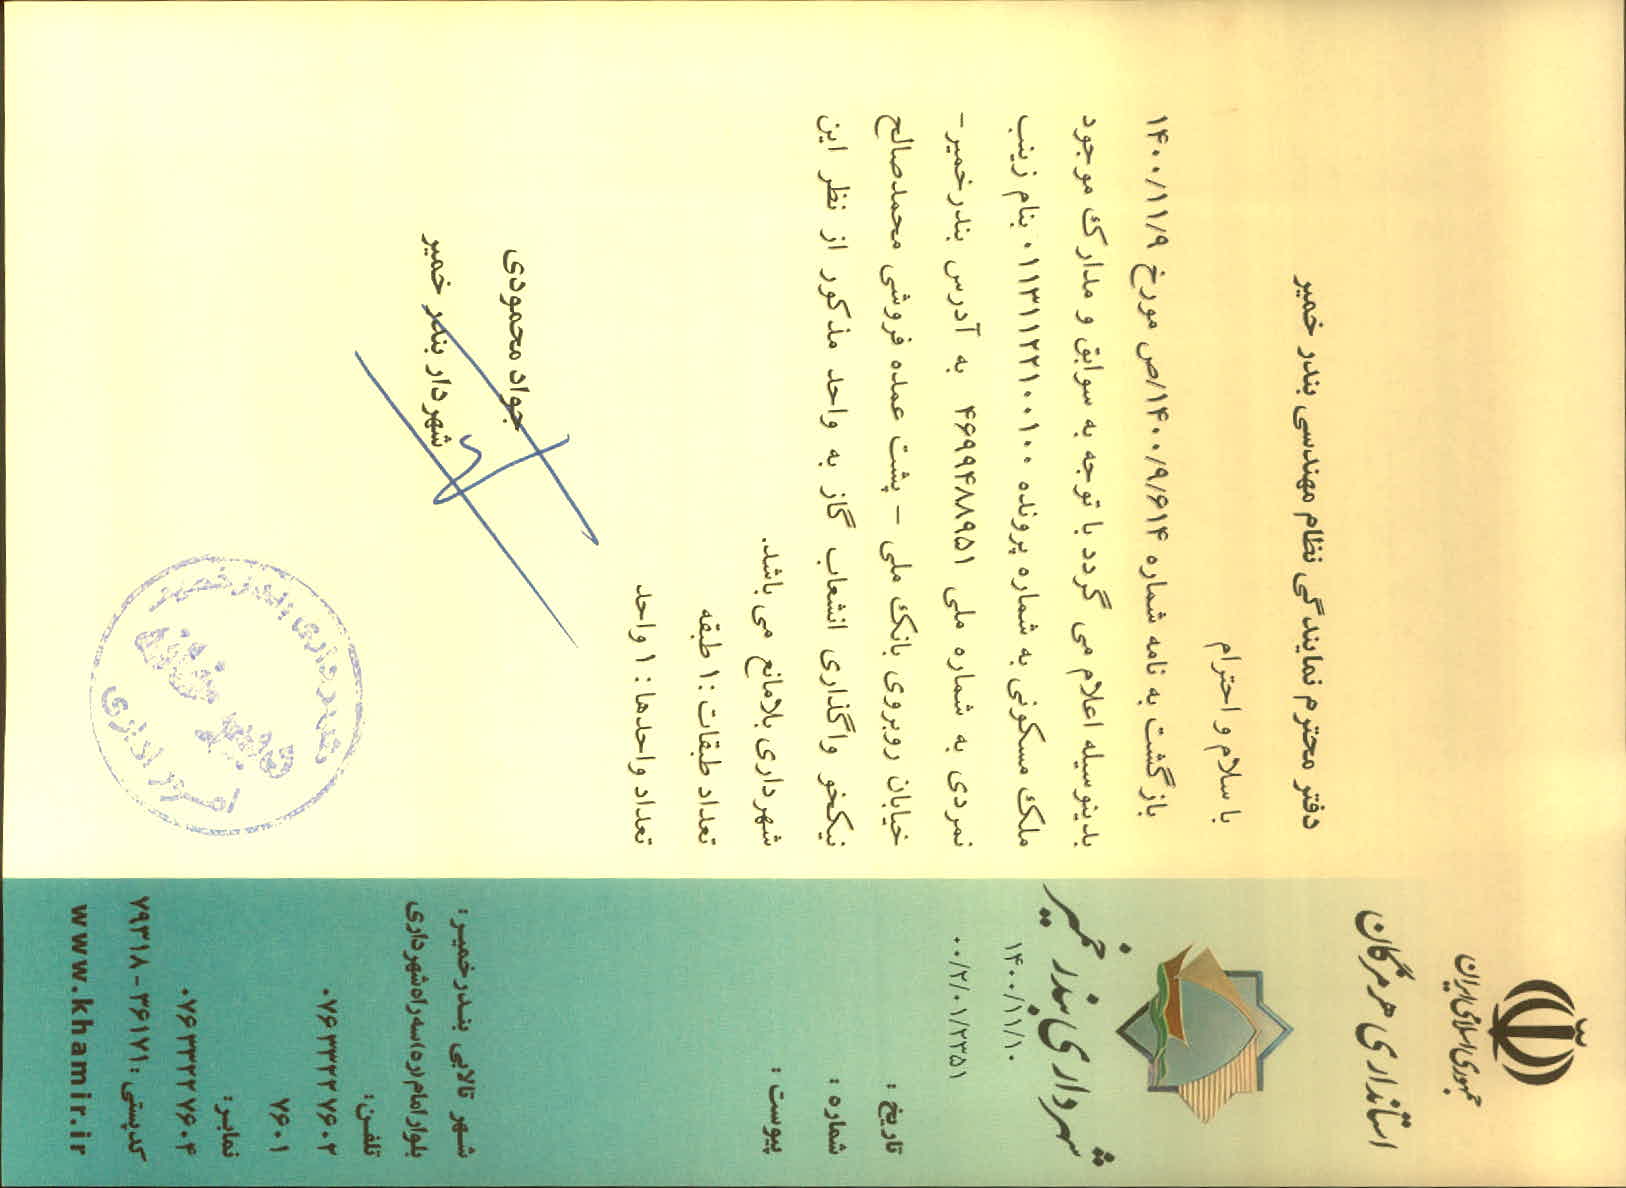 جمهوری اسلامی ایران
استانداری هرمزگان
شهرداری بندر خمیر
۱۴۰۰/۱۱/۱۰
۰۰/۲/۰۱/۲۳۵۱
تاریخ :
شماره :
پیوست :
دفتر محترم نمایندگی نظام مهندسی بندر خمیر
با سلام و احترام
بازگشت به نامه شماره ۱۴۰۰/۹/۶۱۴/ص مورخ ۱۴۰۰/۱۱/۹
بدینوسیله اعلام می گردد با توجه به سوابق و مدارک موجود
ملک مسکونی به شماره پرونده ۰۱۱۳۱۱۲۲۱۰۰۱۰۰ بنام زینب
نمردی به شماره ملی ۴۶۹۹۴۸۸۹۵۱ به آدرس بندرخمیر-
خیابان روبروی بانک ملی - پشت عمده فروشی محمدصالح
نیکخو واگذاری انشعاب گاز به واحد مذکور از نظر این
شهرداری بلامانع می باشد.
تعداد طبقات : ۱ طبقه
تعداد واحدها : ۱ واحد
جواد محمودی
شهردار بندر خمیر
شهرداری بندر خمیر
امور اداری
شهر تالابی بندرخمیر:
بلوار امام (ره) سه راه شهرداری
تلفن:
۰۷۶ ۳۳۳۲ ۷۶۰۲
۷۶۰۱
نمابر:
۰۷۶ ۳۳۳۲ ۷۶۰۴
کدپستی : ۳۶۱۷۱ - ۷۹۳۱۸
www.khamir.ir